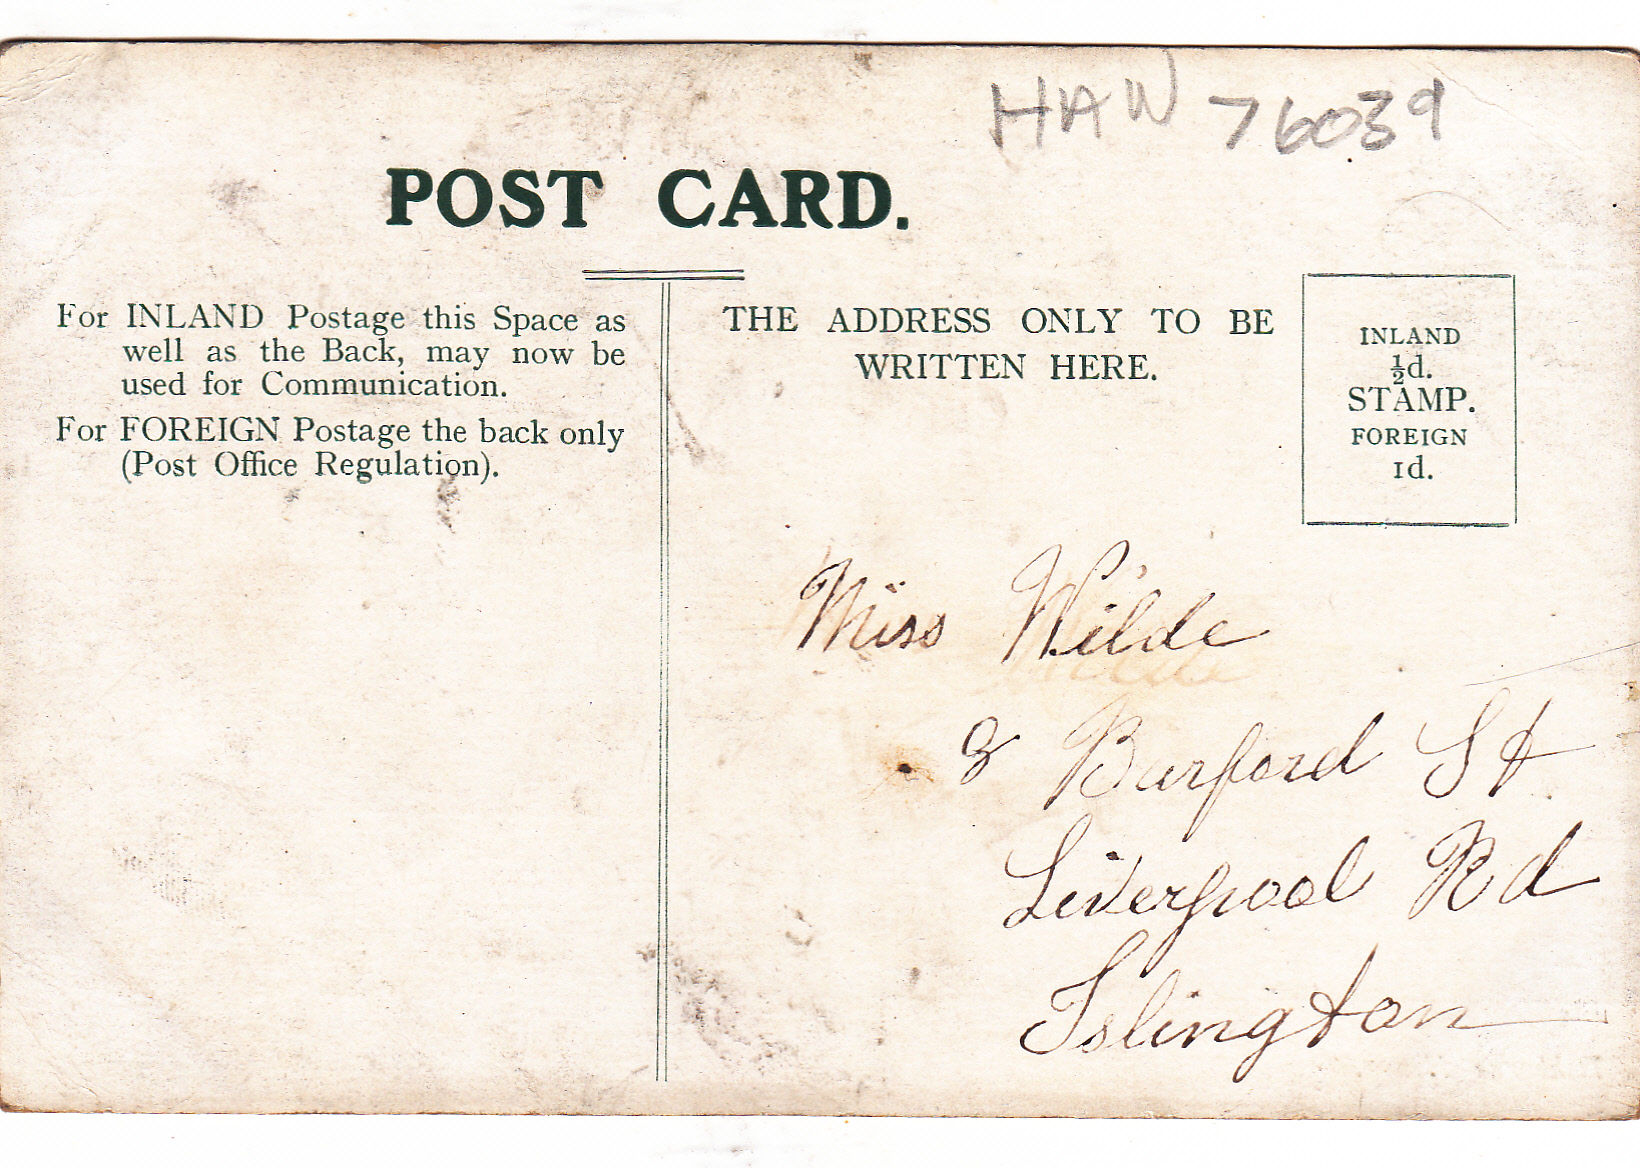 HAW 76039
POST CARD.
For INLAND Postage this Space as
well as the Back, may now be
used for Communication.
For FOREIGN Postage the back only
(Post Office Regulation).
THE ADDRESS ONLY TO BE
WRITTEN HERE.
INLAND
½d.
STAMP.
FOREIGN
1d.
Miss Wilde
Barford St
Liverpool Rd
Islington